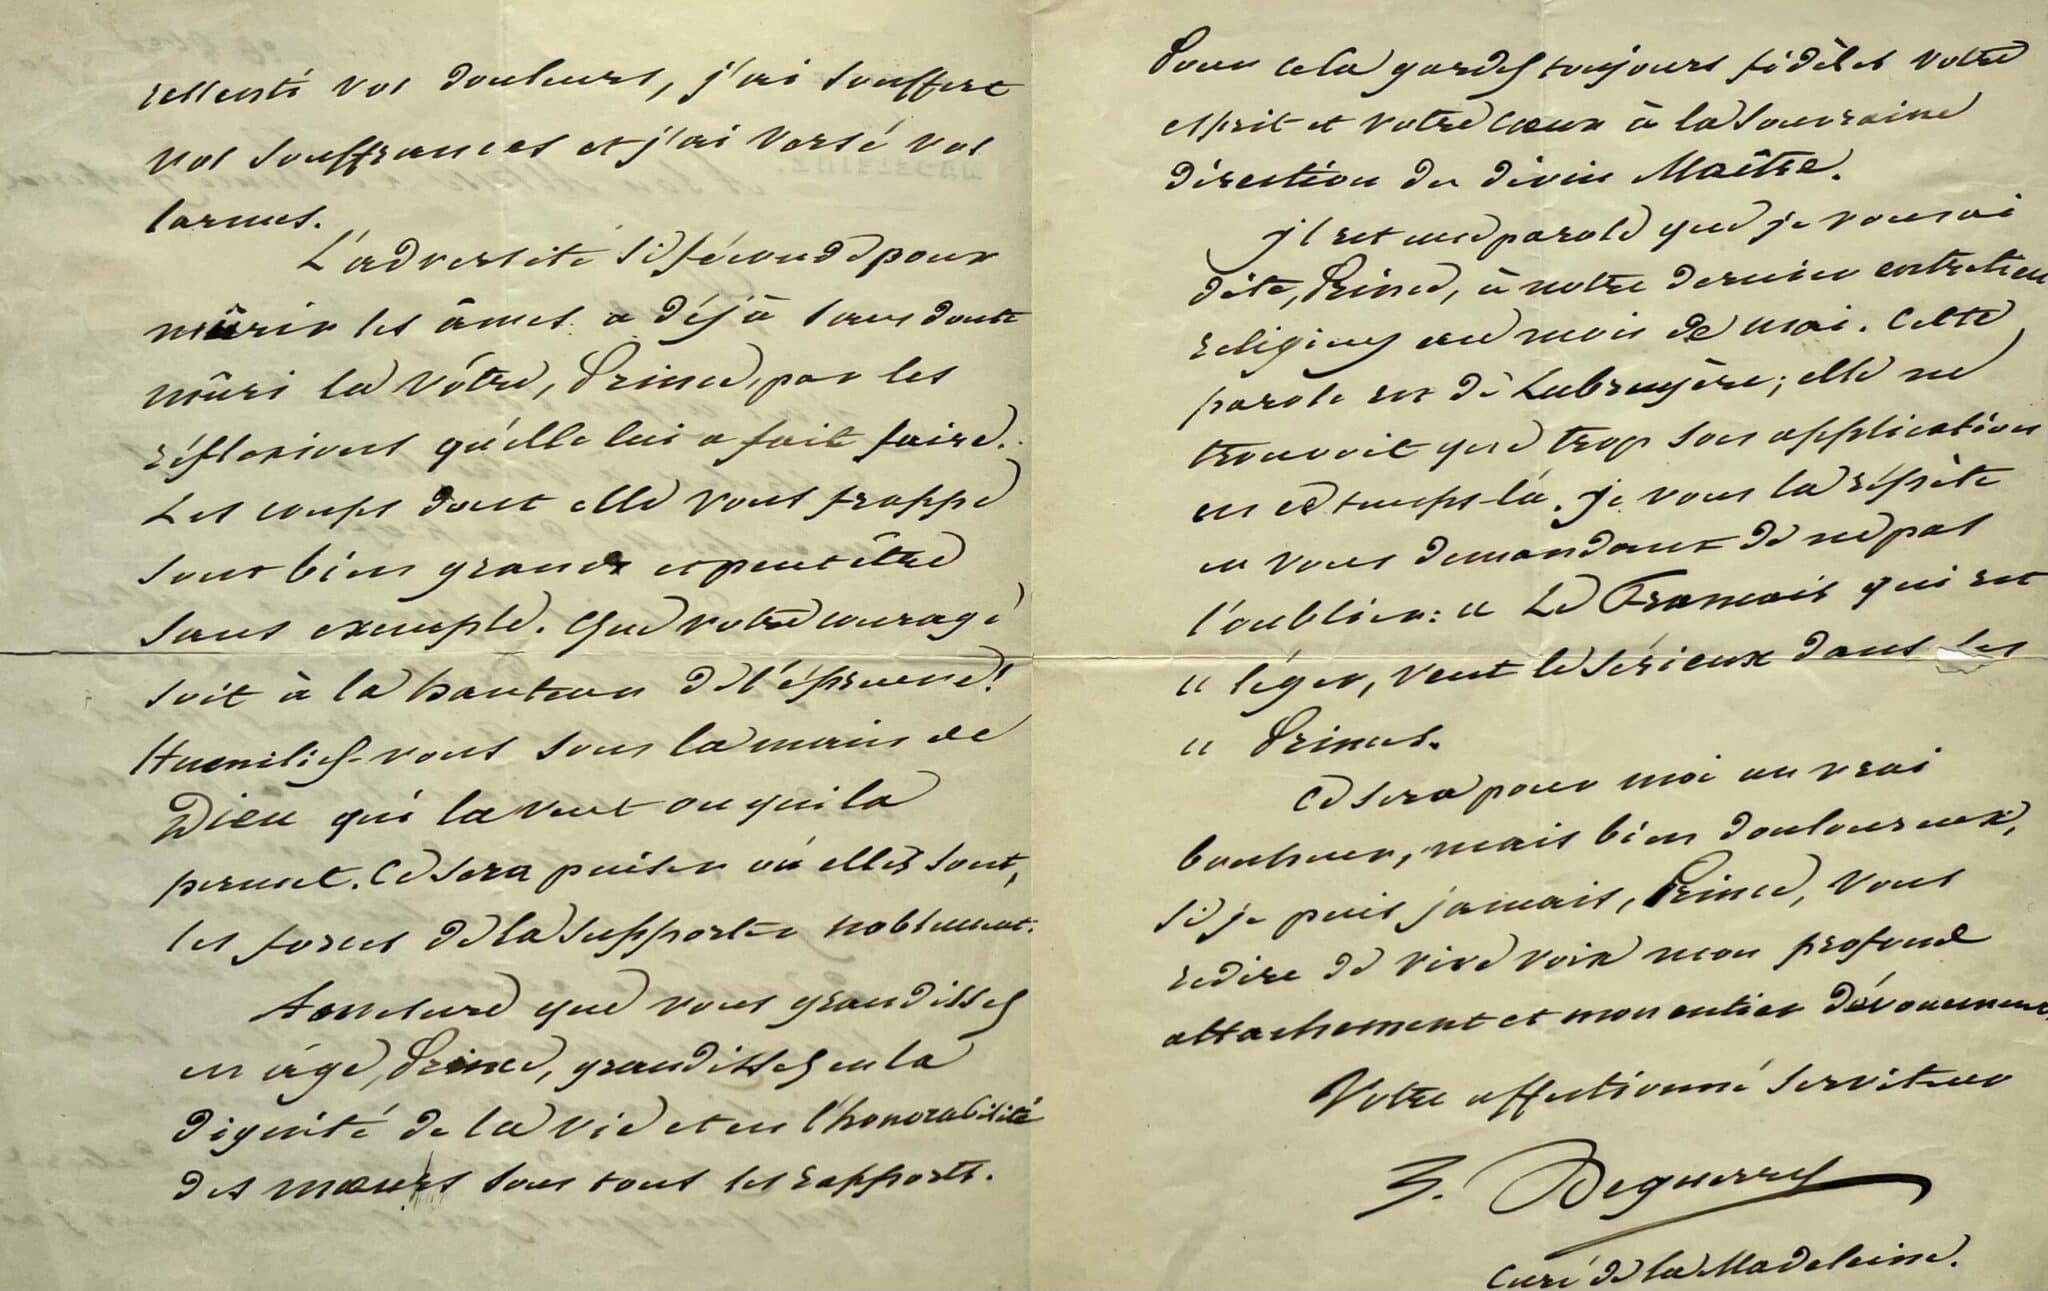 ressenti vos douleurs, j'ai souffert
vos souffrances et j'ai versé vos
larmes.
L'adversité si féconde pour
mûrir les âmes a déjà sans doute
mûri la vôtre, Prince, par les
réflexions qu'elle lui a fait faire.
Les coups dont elle vous frappe
sont bien grands et peut être
sans exemple. Que votre courage
soit à la hauteur de l'épreuve!
Humiliez-vous sous la main de
Dieu qui la veut ou qui la
permet. Ce sera puiser où elles sont,
les forces de la supporter noblement.
A mesure que vous grandissez
en âge, Prince, grandissez en la
dignité de la vie et en l'honorabilité
des mœurs sous tous les rapports.
Pour cela gardez toujours fidèles votre
esprit et votre cœur à la souveraine
direction du divin Maître.
Il est une parole que je vous ai
dite, Prince, à notre dernier entretien
religieux au mois de mai. Cette
parole est de Labruyère; elle ne
trouvait que trop son application
en ce temps-là. Je vous la répète
en vous demandant de ne pas
l'oublier: " Le Français qui est
" léger, veut le sérieux dans ses
" Princes.
Ce sera pour moi un vrai
bonheur, mais bien douloureux,
si je puis jamais, Prince, vous
redire de vive voix mon profond
attachement et mon entier dévouement.
Votre affectionné serviteur
J. Deguerry
Curé de la Madeleine.